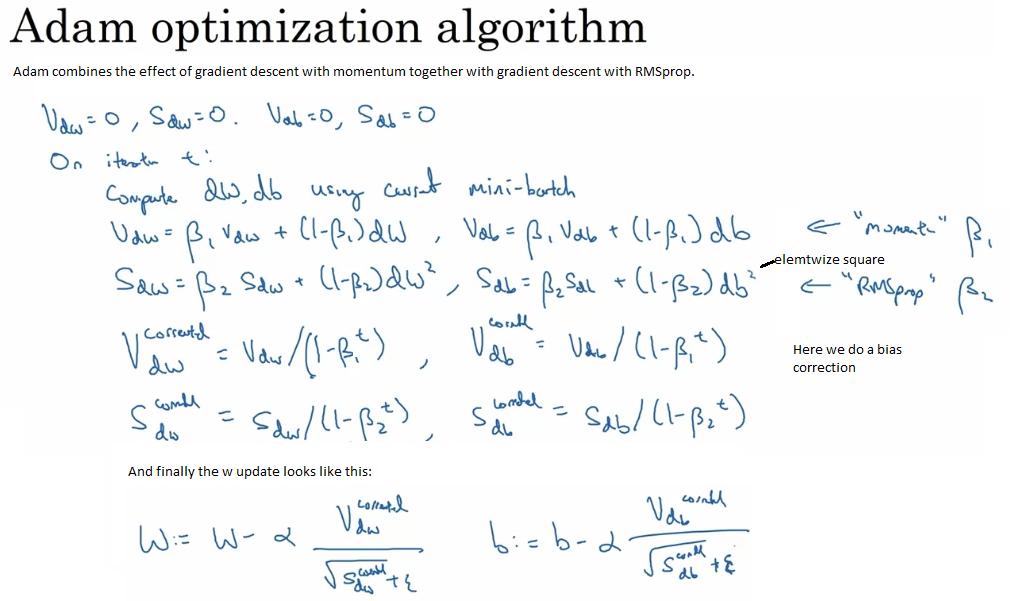 Adam optimization algorithm
Adam combines the effect of gradient descent with momentum together with gradient descent with RMSprop.
V_dw = 0, S_dw = 0. V_db = 0, S_db = 0
On iteratn t:
Compute dW, db using current mini-batch
V_dw = β₁ V_dw + (1-β₁) dW , V_db = β₁ V_db + (1-β₁) db ← "moment" β₁
elemtwize square
S_dw = β₂ S_dw + (1-β₂) dW² , S_db = β₂ S_db + (1-β₂) db² ← "RMSprop" β₂
V_dw^corrected = V_dw / (1-β₁^t) , V_db^corrected = V_db / (1-β₁^t)
Here we do a bias
correction
S_dw^corrected = S_dw / (1-β₂^t) , S_db^corrected = S_db / (1-β₂^t)
And finally the w update looks like this:
W := W - α V_dw^corrected / (√S_dw^corrected + ε) b := b - α V_db^corrected / (√S_db^corrected + ε)